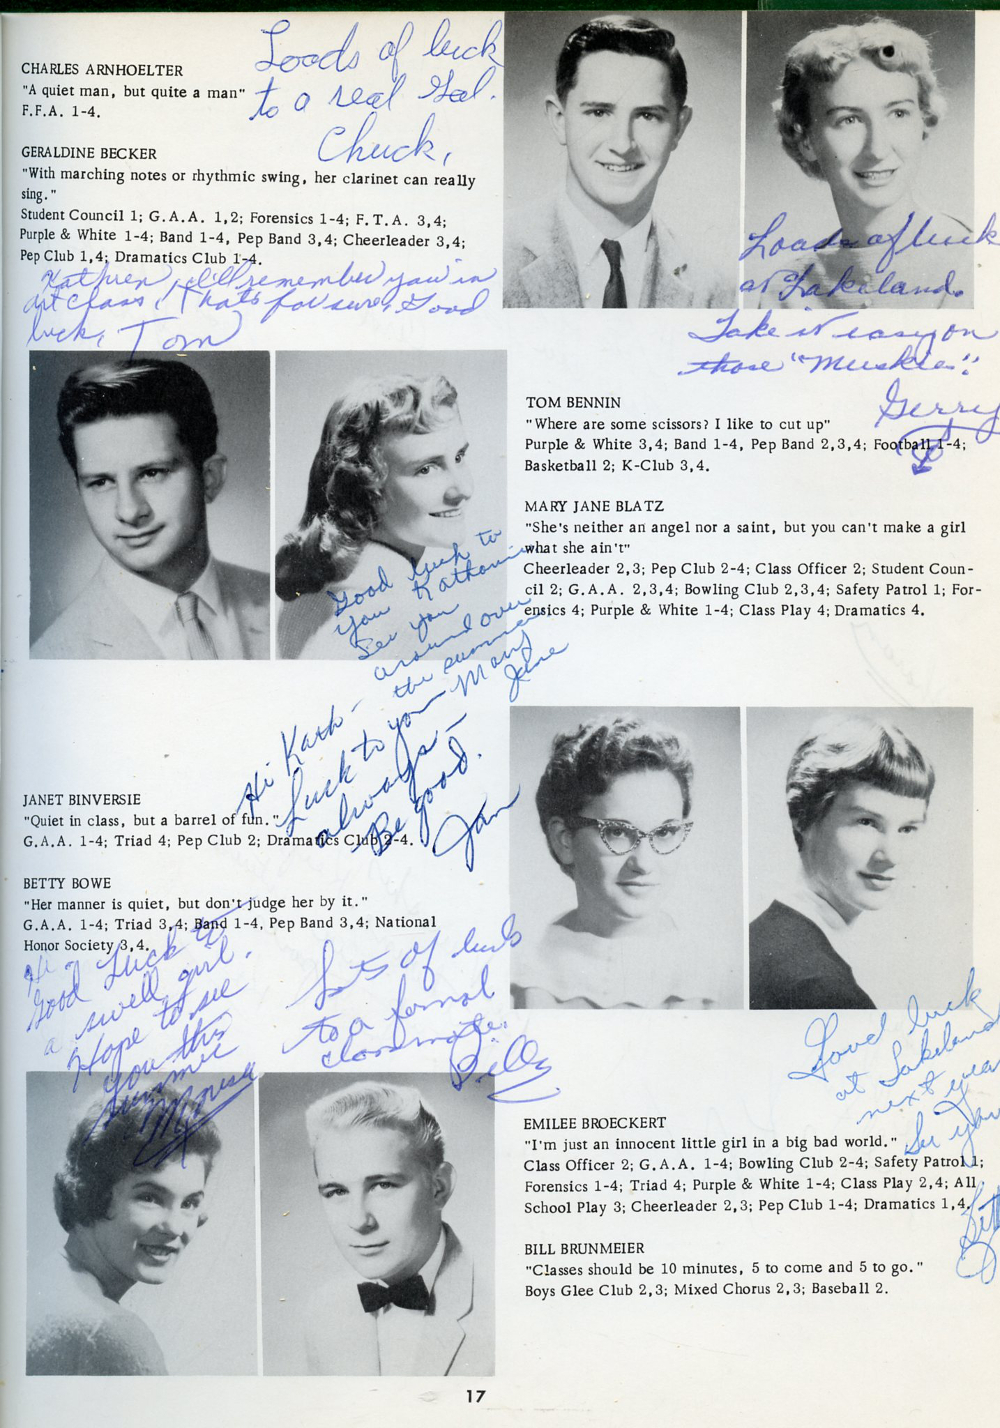 CHARLES ARNHOELTER
"A quiet man, but quite a man"
F.F.A. 1-4.
Loads of luck
to a real Gal.
Chuck,
GERALDINE BECKER
"With marching notes or rhythmic swing, her clarinet can really
sing."
Student Council 1; G.A.A. 1,2; Forensics 1-4; F.T.A. 3,4;
Purple & White 1-4; Band 1-4, Pep Band 3,4; Cheerleader 3,4;
Pep Club 1,4; Dramatics Club 1-4.
Loads of luck
at Lakeland.
Take it easy on
those "Muskies".
Gerry
I'll remember you in
art class, That's for sure, Good
luck, Tom
TOM BENNIN
"Where are some scissors? I like to cut up"
Purple & White 3,4; Band 1-4, Pep Band 2,3,4; Football 1-4;
Basketball 2; K-Club 3,4.
MARY JANE BLATZ
"She's neither an angel nor a saint, but you can't make a girl
what she ain't"
Cheerleader 2,3; Pep Club 2-4; Class Officer 2; Student Coun-
cil 2; G.A.A. 2,3,4; Bowling Club 2,3,4; Safety Patrol 1; For-
ensics 4; Purple & White 1-4; Class Play 4; Dramatics 4.
Good luck to
you
See you
around over
the summer
Mary
Jane
Hi Kath-
Luck to you
always-
Be good.
Jan
JANET BINVERSIE
"Quiet in class, but a barrel of fun."
G.A.A. 1-4; Triad 4; Pep Club 2; Dramatics Club 2-4.
BETTY BOWE
"Her manner is quiet, but don't judge her by it."
G.A.A. 1-4; Triad 3,4; Band 1-4, Pep Band 3,4; National
Honor Society 3,4.
Hi
Good Luck to
a swell girl.
Hope to see
you this
summer
Lots of luck
to a
classmate.
Billy
Good luck
at Lakeland
next year
See you
EMILEE BROECKERT
"I'm just an innocent little girl in a big bad world."
Class Officer 2; G.A.A. 1-4; Bowling Club 2-4; Safety Patrol 1;
Forensics 1-4; Triad 4; Purple & White 1-4; Class Play 2,4; All
School Play 3; Cheerleader 2,3; Pep Club 1-4; Dramatics 1,4.
BILL BRUNMEIER
"Classes should be 10 minutes, 5 to come and 5 to go."
Boys Glee Club 2,3; Mixed Chorus 2,3; Baseball 2.
17